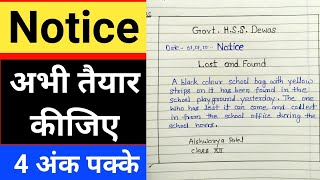 Notice
अभी तैयार
कीजिए
4 अंक पक्के
Govt. H.S.S. Dewas
Notice
Lost and Found
A black colour school bag with yellow
strips on it has been found in the
school playground yesterday. The one
who has lost it can come and collect
it from the school office during the
school hours.
Aishwarya Patel
class XII